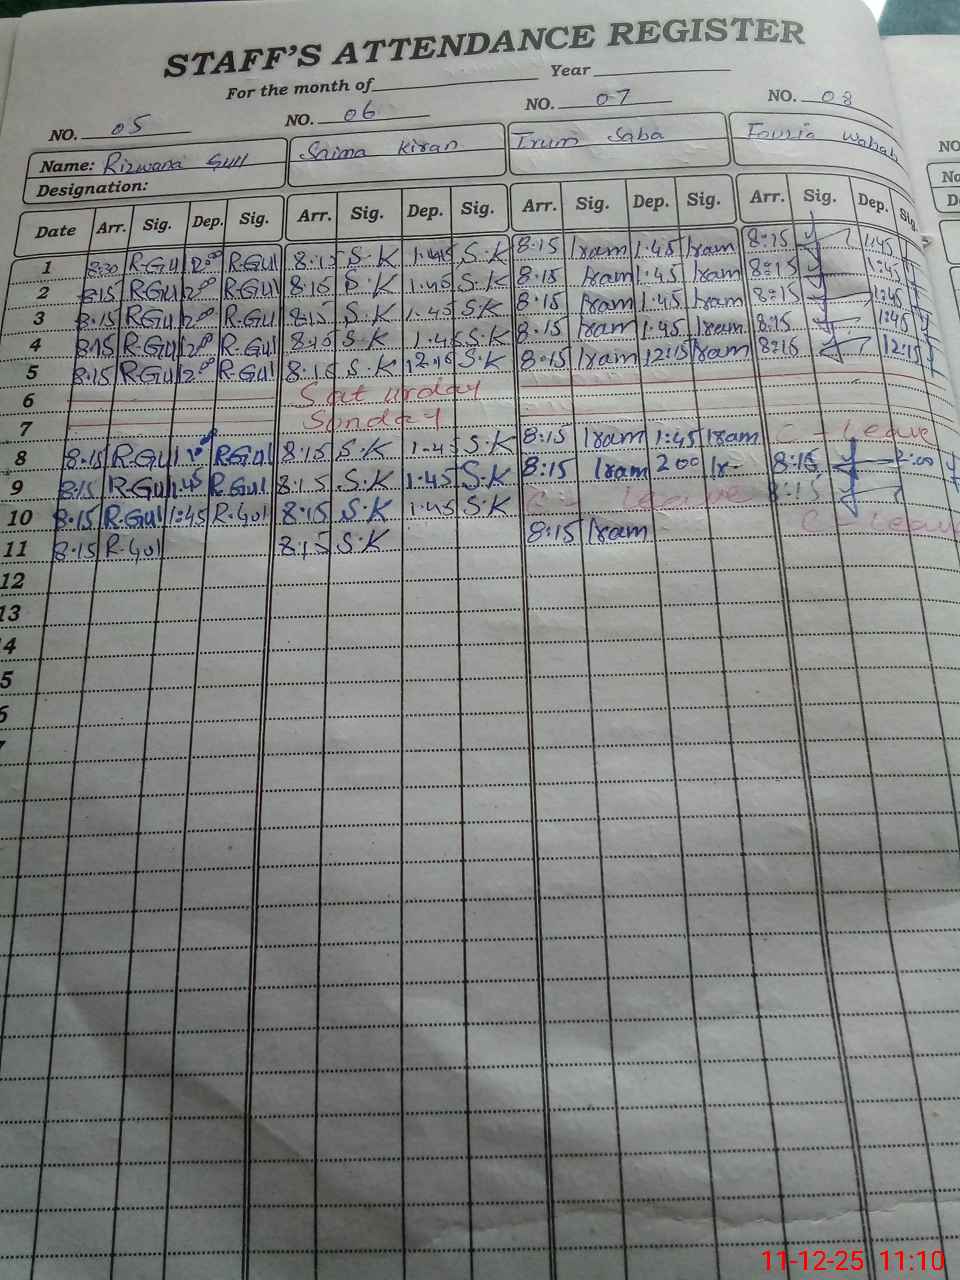 STAFF'S ATTENDANCE REGISTER
For the month of Year
NO. 05 NO. 06 NO. 07 NO. 08
Name: Rizwana Gull Saima Kiran Irum Saba Fouzia Wahab
Designation:
Date Arr. Sig. Dep. Sig. Arr. Sig. Dep. Sig. Arr. Sig. Dep. Sig. Arr. Sig. Dep. Sig.
1 8:30 R.Gul 2:00 R.Gul 8:15 S.K 1:45 S.K 8:15 Iram 1:45 Iram 8:15 1:45
2 8:15 R.Gul 2:00 R.Gul 8:15 S.K 1:45 S.K 8:15 Iram 1:45 Iram 8:15 1:45
3 8:15 R.Gul 2:00 R.Gul 8:15 S.K 1:45 S.K 8:15 Iram 1:45 Iram 8:15 1:45
4 8:15 R.Gul 2:00 R.Gul 8:15 S.K 1:45 S.K 8:15 Iram 1:45 Iram 8:15 1:45
5 8:15 R.Gul R.Gul 8:15 S.K 12:15 S.K 8:15 Iram 12:15 Iram 8:15 12:15
6 Saturday
7 Sonday
8 8:15 R.Gul R.Gul 8:15 S.K 1:45 S.K 8:15 Iram 1:45 Iram C - Leave
9 8:15 R.Gul 1:45 R.Gul 8:15 S.K 1:45 S.K 8:15 Iram 2:00 Ir 8:15 2:00
10 8:15 R.Gul 1:45 R.Gul 8:15 S.K 1:45 S.K C - Leave 8:15
11 8:15 R.Gul 8:15 S.K 8:15 Iram C - Leave
12
13
11-12-25 11:10